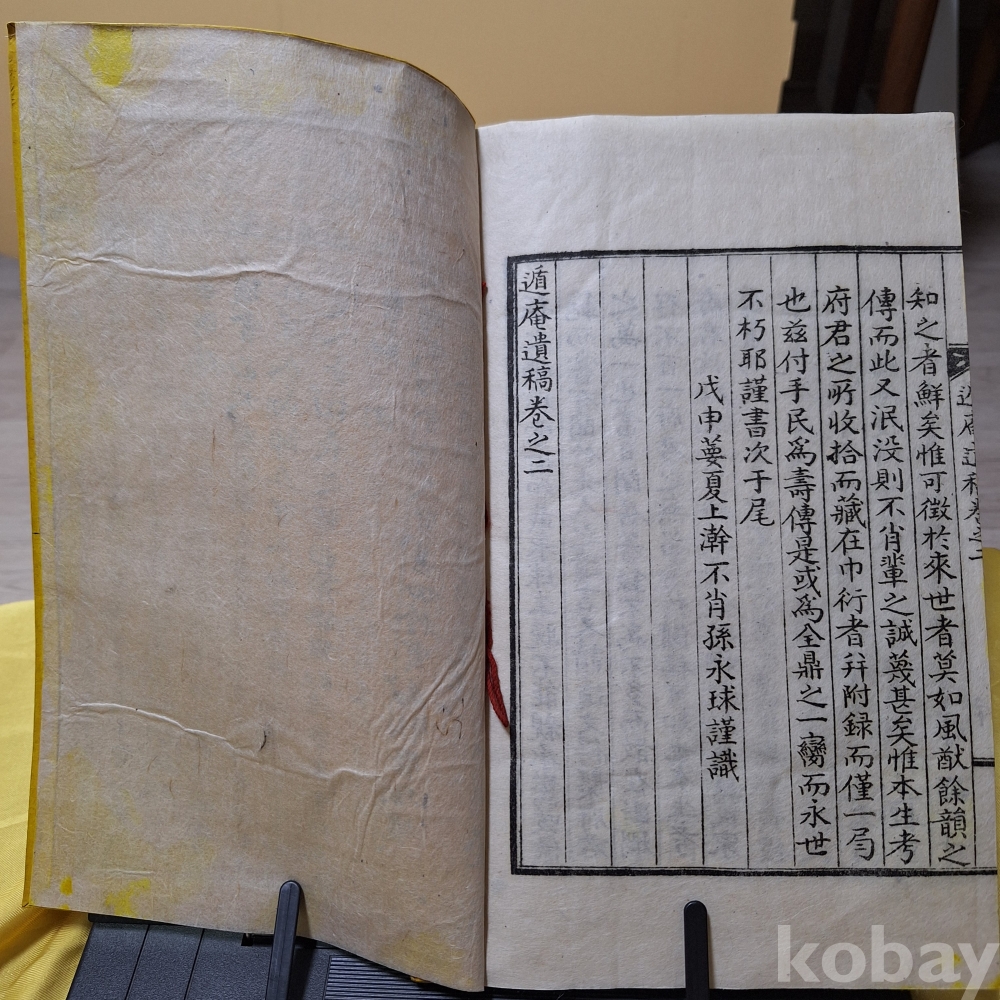 遁庵遺稿卷之二
知之者鮮矣惟可徵於來世者莫如風猷餘韻之
傳而此又泯没則不肖輩之誠蔑甚矣惟本生考
府君之所收拾而藏在巾衍者幷附録而僅一局
也玆付手民爲壽傳是或爲全鼎之一臠而永世
不朽耶謹書次于尾
戊申蓂夏上澣不肖孫永球謹識
遁庵遺稿卷之二
kobay